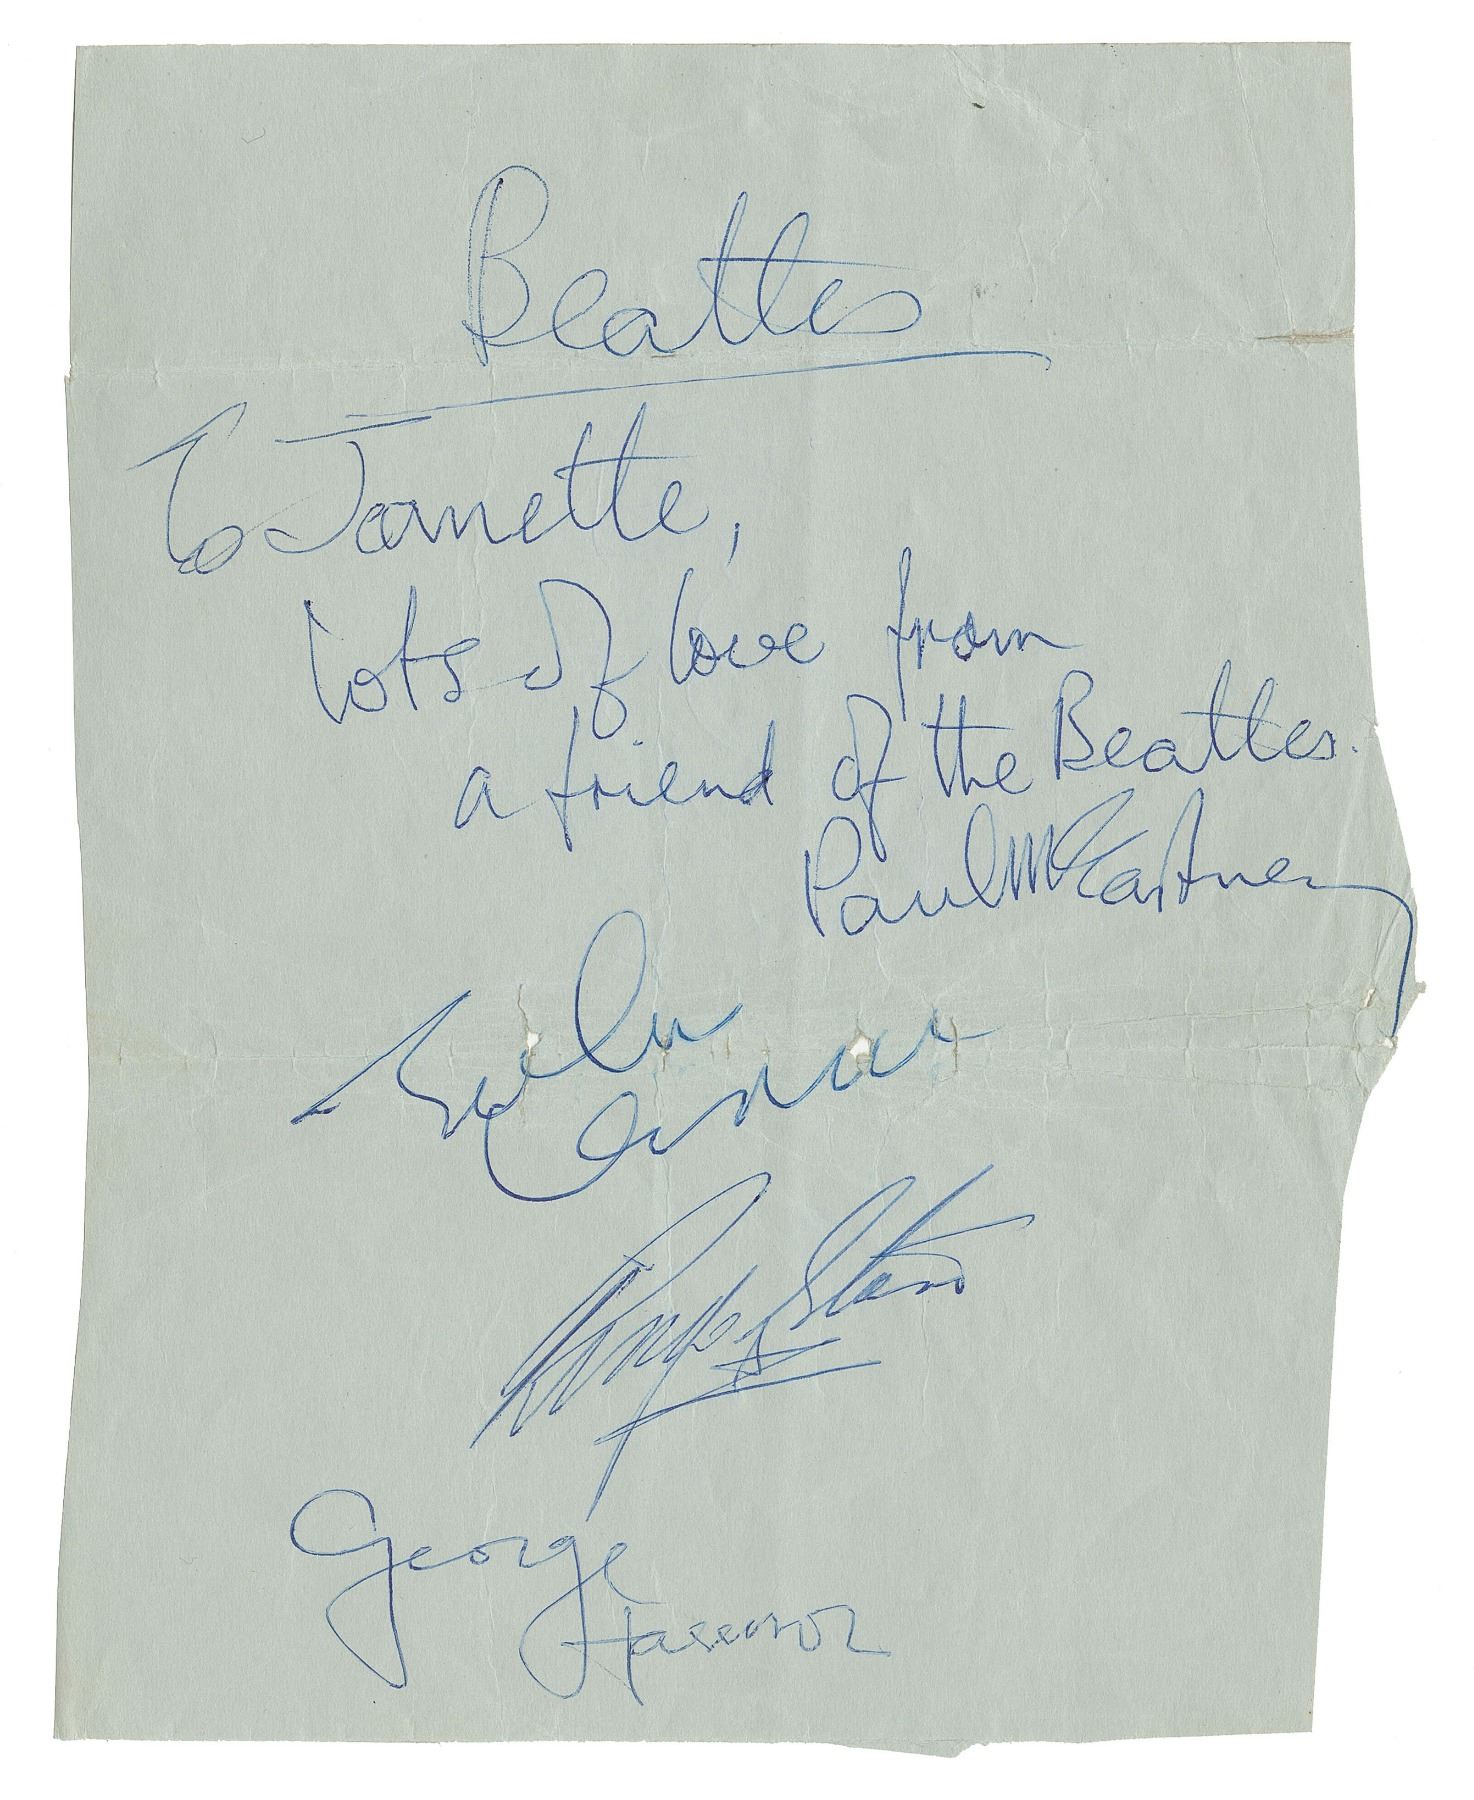 Beatles
To Jannette,
lots of love from
a friend of the Beatles.
Paul McCartney
John
Lennon
Ringo Starr
George
Harrison